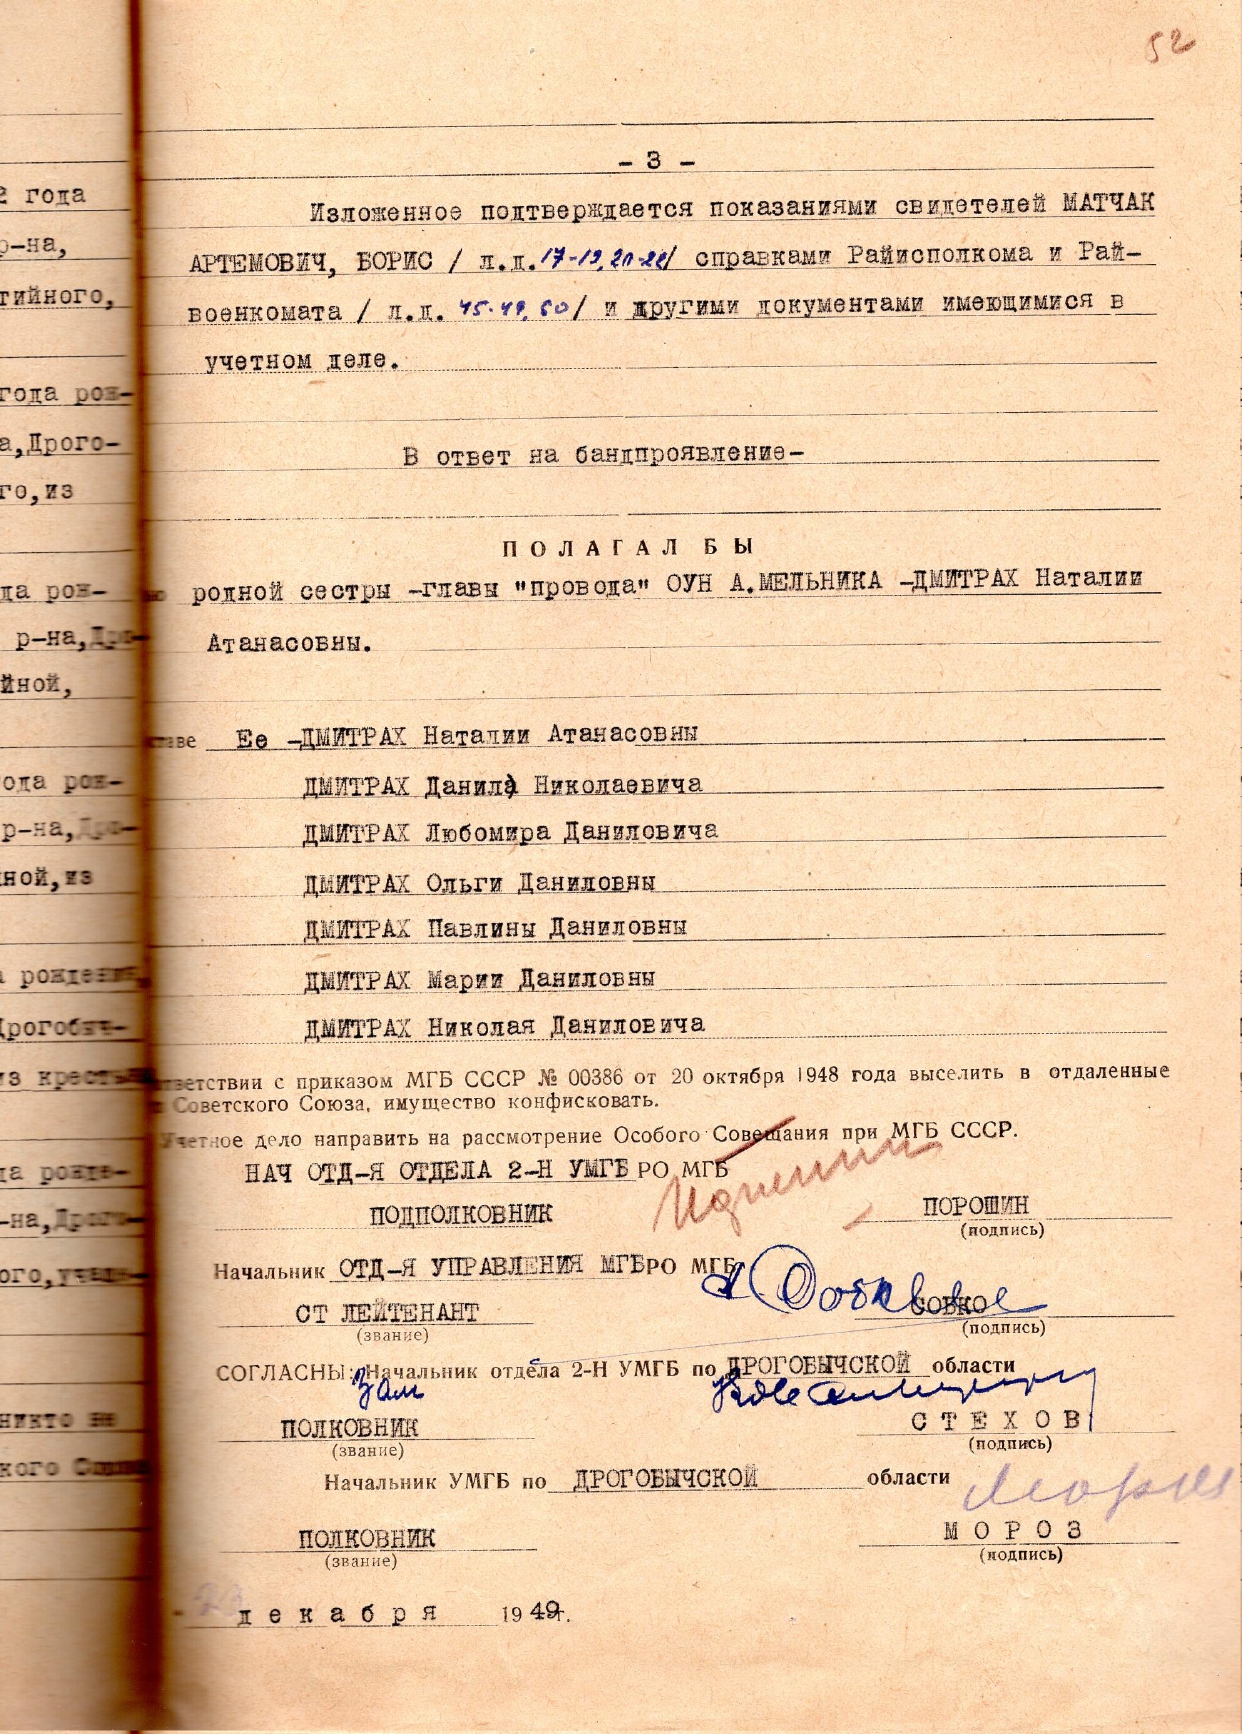 52
- 3 -
Изложенное подтверждается показаниями свидетелей МАТЧАК
АРТЕМОВИЧ, БОРИС / л.д. 17-19, 20-22/ справками Райисполкома и Рай-
военкомата / л.д. 45-49, 50/ и другими документами имеющимися в
учетном деле.
В ответ на бандпроявление-
ПОЛАГАЛ БЫ
родной сестры -главы "провода" ОУН А.МЕЛЬНИКА -ДМИТРАХ Наталии
Атанасовны.
Ее -ДМИТРАХ Наталии Атанасовны
ДМИТРАХ Данила Николаевича
ДМИТРАХ Любомира Даниловича
ДМИТРАХ Ольги Даниловны
ДМИТРАХ Павлины Даниловны
ДМИТРАХ Марии Даниловны
ДМИТРАХ Николая Даниловича
ветствии с приказом МГБ СССР № 00386 от 20 октября 1948 года выселить в отдаленные
Советского Союза, имущество конфисковать.
Учетное дело направить на рассмотрение Особого Совещания при МГБ СССР.
НАЧ ОТД-Я ОТДЕЛА 2-Н УМГБ РО МГБ
ПОДПОЛКОВНИК ПОРОШИН
(подпись)
Начальник ОТД-Я УПРАВЛЕНИЯ МГБ РО МГБ
СТ ЛЕЙТЕНАНТ СОВКО
(звание) (подпись)
СОГЛАСНЫ: Начальник отдела 2-Н УМГБ по ДРОГОБЫЧСКОЙ области
Зам
ПОЛКОВНИК СТЕХОВ
(звание) (подпись)
Начальник УМГБ по ДРОГОБЫЧСКОЙ области
Мороз
ПОЛКОВНИК МОРОЗ
(звание) (подпись)
декабря 1949г.
2 года
р-на,
тийного,
года рож-
а,Дрого-
го,из
да рож-
р-на,Дро-
йной,
ода рож-
р-на,Дро-
ной,из
а рождения,
Дрогобыч-
из кресть
да рожде-
-на,Дрого-
ого,
никто не
кого Союза